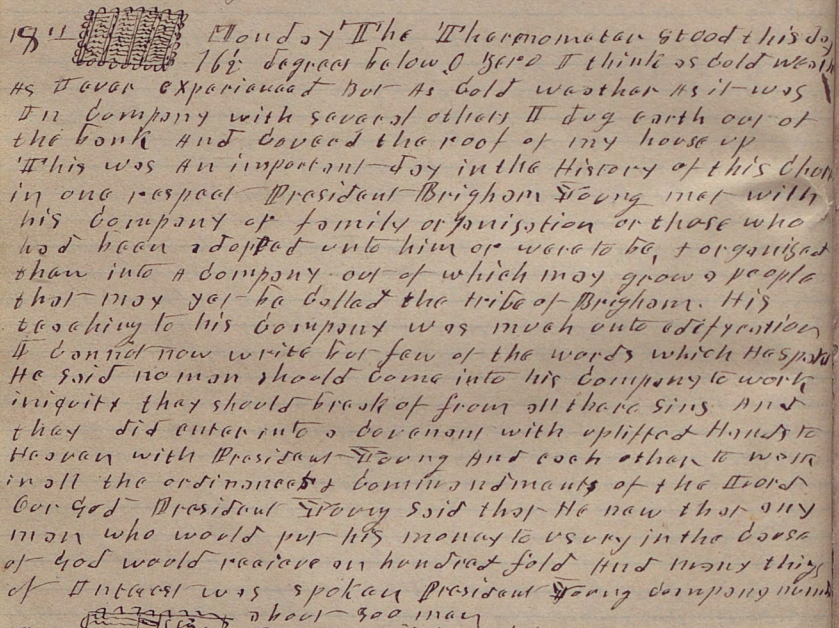 18th Monday The Thermometer stood this day
16½ degrees below 0 Zero I think as Cold weath
As I ever experienced But As Cold weather As it was
In Company with several others I dug earth out of
the bank And Covered the roof of my house up
This was An important day in the History of this Church
in one respect President Brigham Young met with
his Company of family organisation or those who
had been adopted unto him or were to be, & organised
them into A Company out of which may grow a people
that may yet be Called the tribe of Brigham. His
teaching to his Company was much unto edifycation
I cannot now write but few of the words which He spoke
He said no man should Come into his Company to work
iniquity they should break of from all there sins And
they did enter into a Covenant with uplifted Hands to
Heaven with President Young And each other to walk
in all the ordinances & Commandments of the Lord
Our God President Young Said that He new that any
man who would put his money to usury in the Cause
of God would receive an hundred fold And many things
of Interest was spoken President Young Company numb
about 300 men